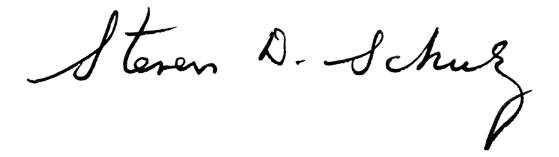 Steven D. Schulz